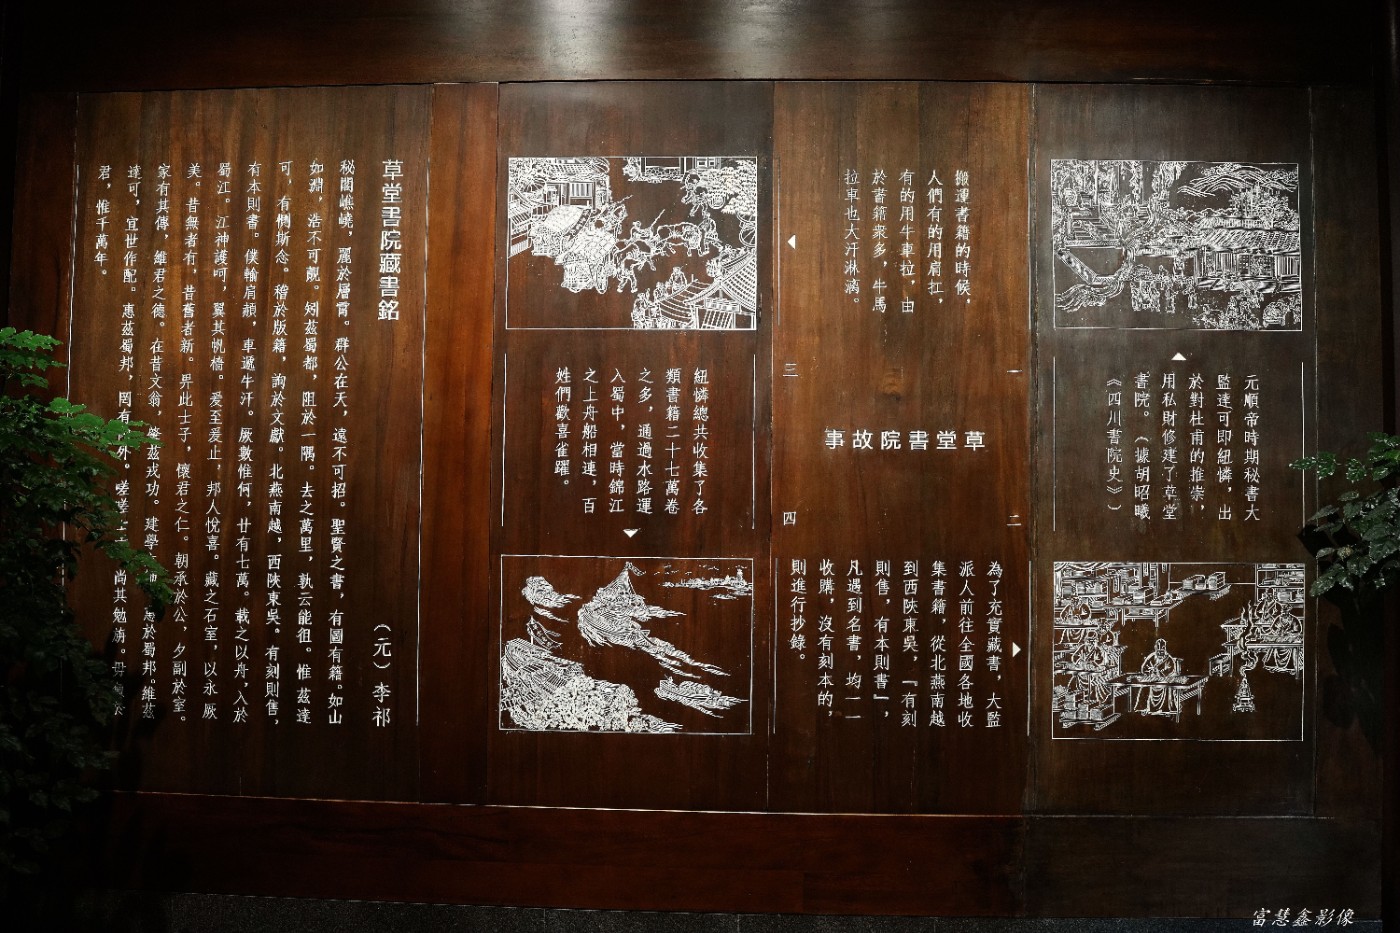 草堂書院故事
一
元順帝時期秘書大
監達可即紐憐，出
於對杜甫的推崇，
用私財修建了草堂
書院。（據胡昭曦
《四川書院史》）
二
為了充實藏書，大監
派人前往全國各地收
集書籍，從北燕南越
到西陝東吳，「有刻
則售，有本則書」，
凡遇到名書，均一一
收購，沒有刻本的，
則進行抄錄。
三
搬運書籍的時候，
人們有的用肩扛，
有的用牛車拉，由
於書籍衆多，牛馬
拉車也大汗淋漓。
四
紐憐總共收集了各
類書籍二十七萬卷
之多，通過水路運
入蜀中，當時錦江
之上舟船相連，百
姓們歡喜雀躍。
草堂書院藏書銘
（元）李祁
秘閣譙嶢，麗於層霄。群公在天，遠不可招。聖賢之書，有圖有籍。如山
如淵，浩不可覿。矧茲蜀都，阻於一隅。去之萬里，孰云能徂。惟茲達
可，有惻斯念。稽於版籍，詢於文獻。北燕南越，西陝東吳。有刻則售，
有本則書。僕輸肩頳，車遞牛汗。厥數惟何，廿有七萬。載之以舟，入於
蜀江。江神護呵，翼其帆檣。爰至爰止，邦人悅喜。藏之石室，以永厥
美。昔無者有，昔舊者新。畀此士子，懷君之仁。朝承於公，夕副於室。
家有其傳，維君之德。在昔文翁，肇茲戎功。建學 於蜀邦。維茲
達可，宜世作配。惠茲蜀邦，罔有 外。嗟嗟士 尚其勉旃。毋
君，惟千萬年。
富慧鑫影像